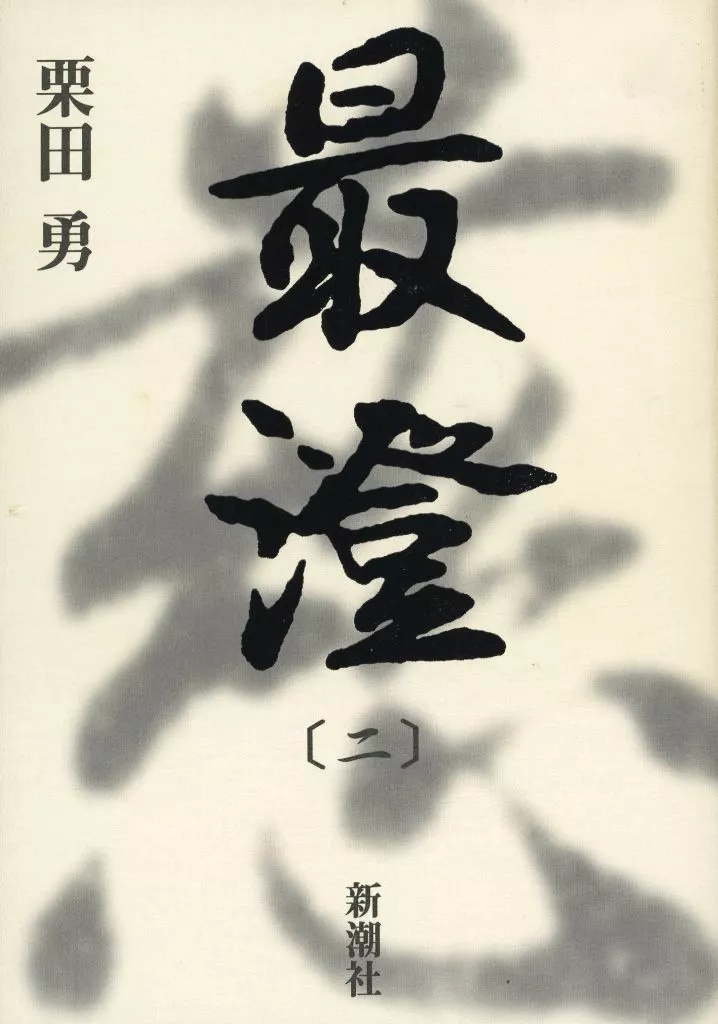 最澄
〔二〕
栗田 勇
新潮社